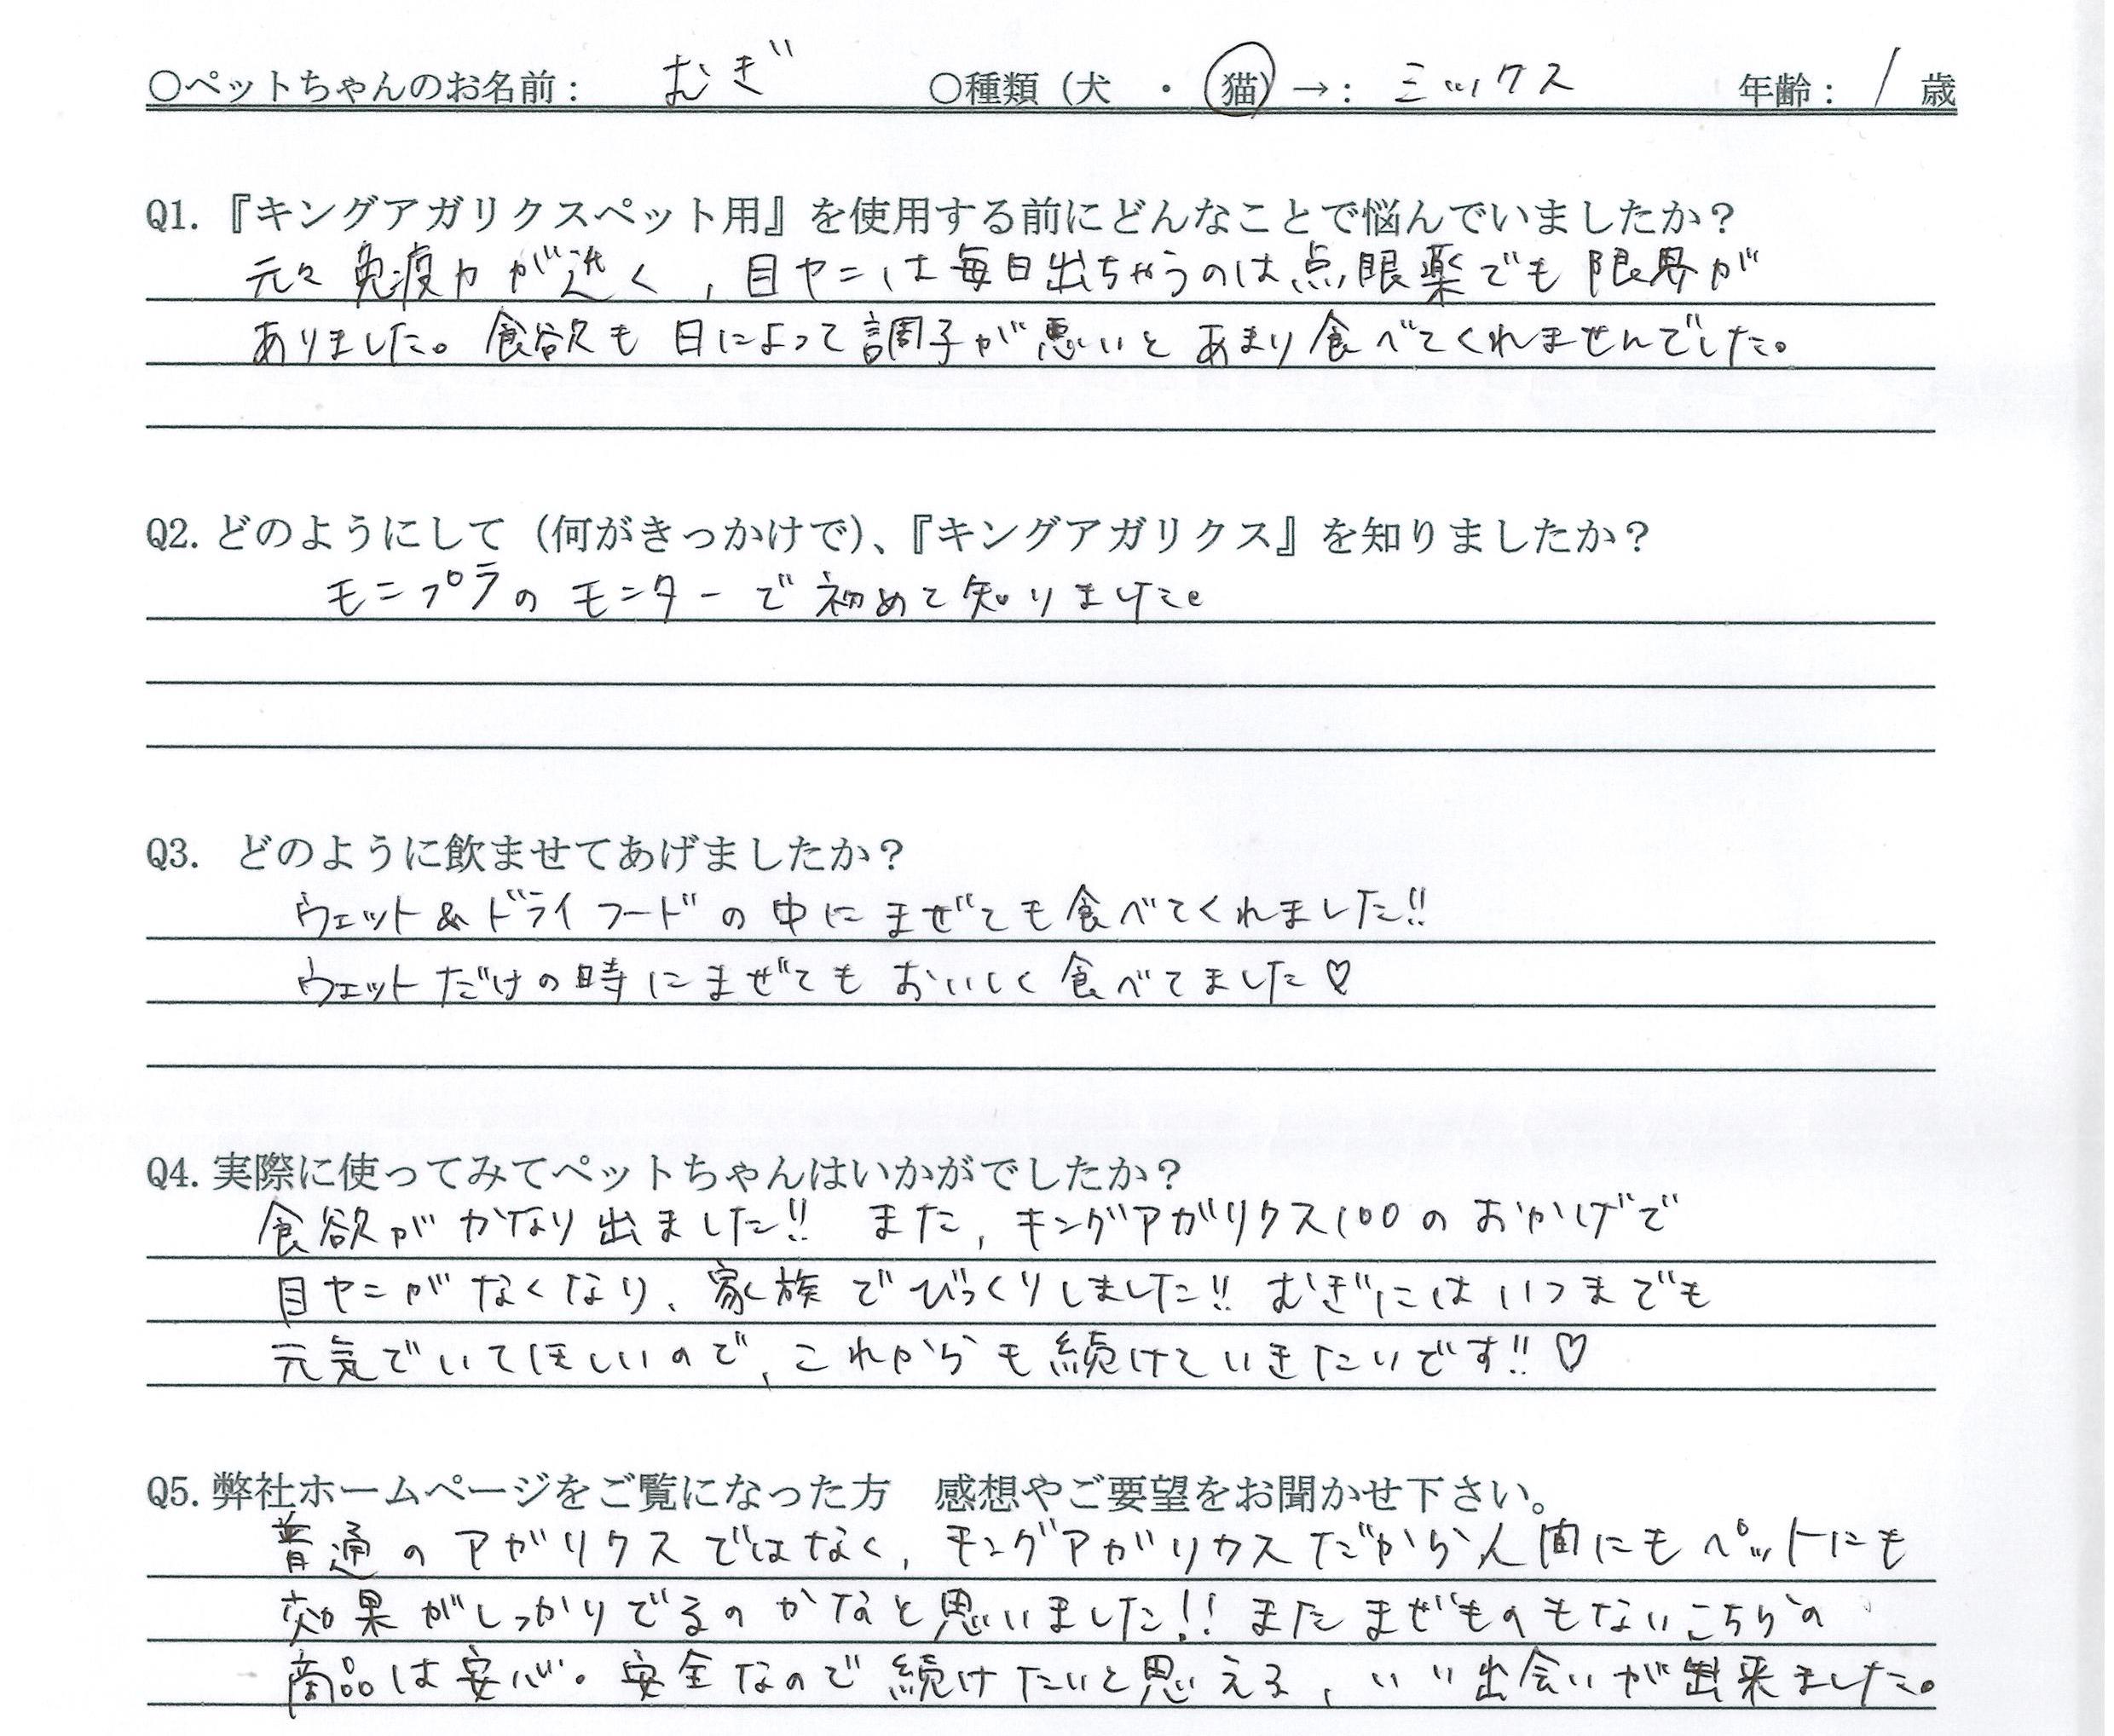 ○ペットちゃんのお名前： むぎ ○種類（犬 ・ 猫）→： ミックス 年齢： 1 歳
Q1.『キングアガリクスペット用』を使用する前にどんなことで悩んでいましたか？
元々免疫力が、目ヤニは毎日出ちゃうのは点眼薬でも限界が
ありました。食欲も日によって調子が悪いとあまり食べてくれませんでした。
Q2.どのようにして（何がきっかけで）、『キングアガリクス』を知りましたか？
モニプラのモニターで初めて知りました。
Q3. どのように飲ませてあげましたか？
ウェット&ドライフードの中にまぜても食べてくれました!!
ウェットだけの時にまぜてもおいしく食べてました♡
Q4.実際に使ってみてペットちゃんはいかがでしたか？
食欲がかなり出ました!! また、キングアガリクス100のおかげで
目ヤニがなくなり、家族でびっくりしました!! むぎにはいつまでも
元気でいてほしいので、これからも続けていきたいです!!♡
Q5.弊社ホームページをご覧になった方 感想やご要望をお聞かせ下さい。
普通のアガリクスではなく、キングアガリクスだから人間にもペットにも
効果がしっかりでるのかなと思いました!! またまぜものもないこちらの
商品は安心。安全なので続けたいと思える、いい出会いが出来ました。